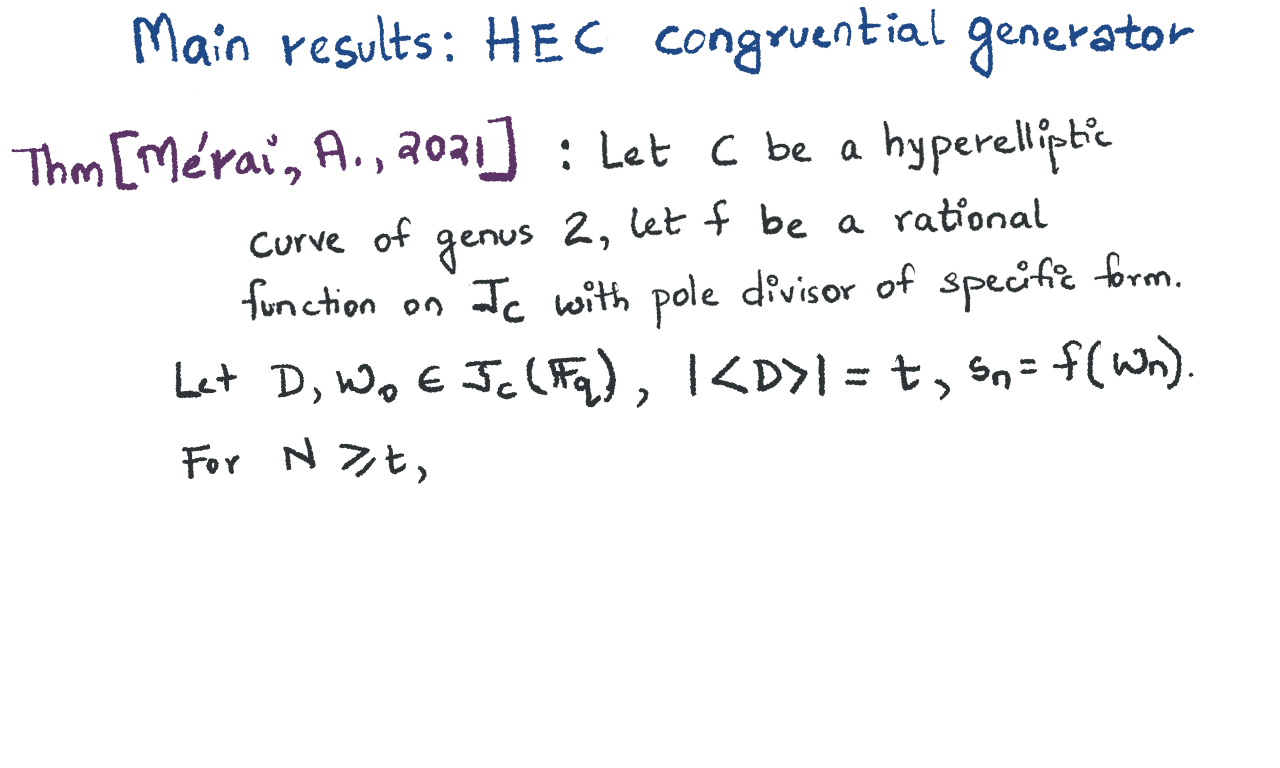 Main results: HEC congruential generator
Thm [Mérai, A., 2021] : Let C be a hyperelliptic
curve of genus 2, let f be a rational
function on J_C with pole divisor of specific form.
Let D, W_0 ∈ J_C(𝔽_q), |<D>| = t, s_n = f(W_n).
For N ⩾ t,